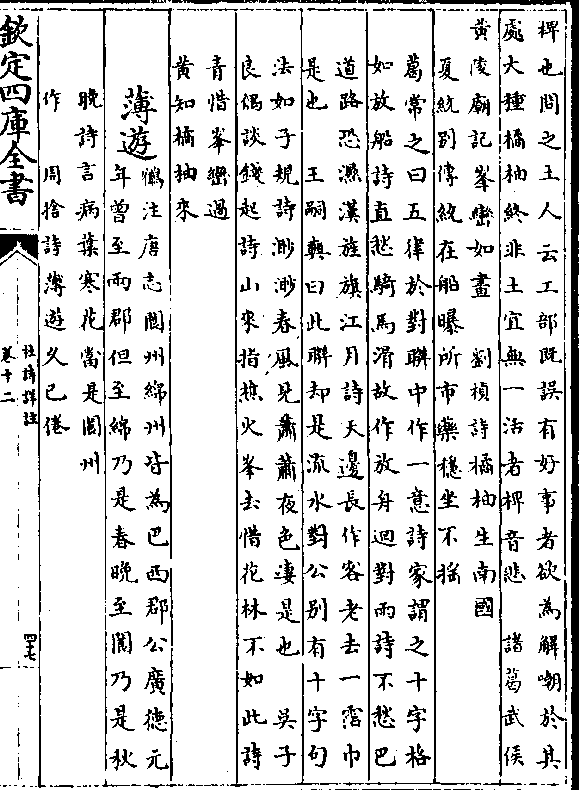 稗也問之土人云工部既誤有好事者欲為解嘲於其
處大種橘柚終非土宜無一活者稗音悲　諸葛武侯
黄陵廟記峯巒如畫　劉楨詩橘柚生南國
夏統别傳統在船曝所市藥穩坐不揺
葛常之曰五律於對聯中作一意詩家謂之十字格
如放船詩直愁騎馬滑故作放舟迴對雨詩不愁巴
道路恐濕漢旌旗江月詩天邊長作客老去一霑巾
是也　王嗣奭曰此聯却是流水對公别有十字句
法如子規詩渺渺春風見蕭蕭夜色凄是也　吳子
良偶談錢起詩山來指樵火峯去惜花林不如此詩
青惜峯巒過
黄知橘柚來
薄遊
鶴注唐志閬州綿州皆為巴西郡公廣德元
年曽至兩郡但至綿乃是春晚至閬乃是秋
晚詩言病葉寒花當是閬州
作　周捨詩薄遊久已倦
欽定四庫全書
杜詩詳註
卷十二
四七